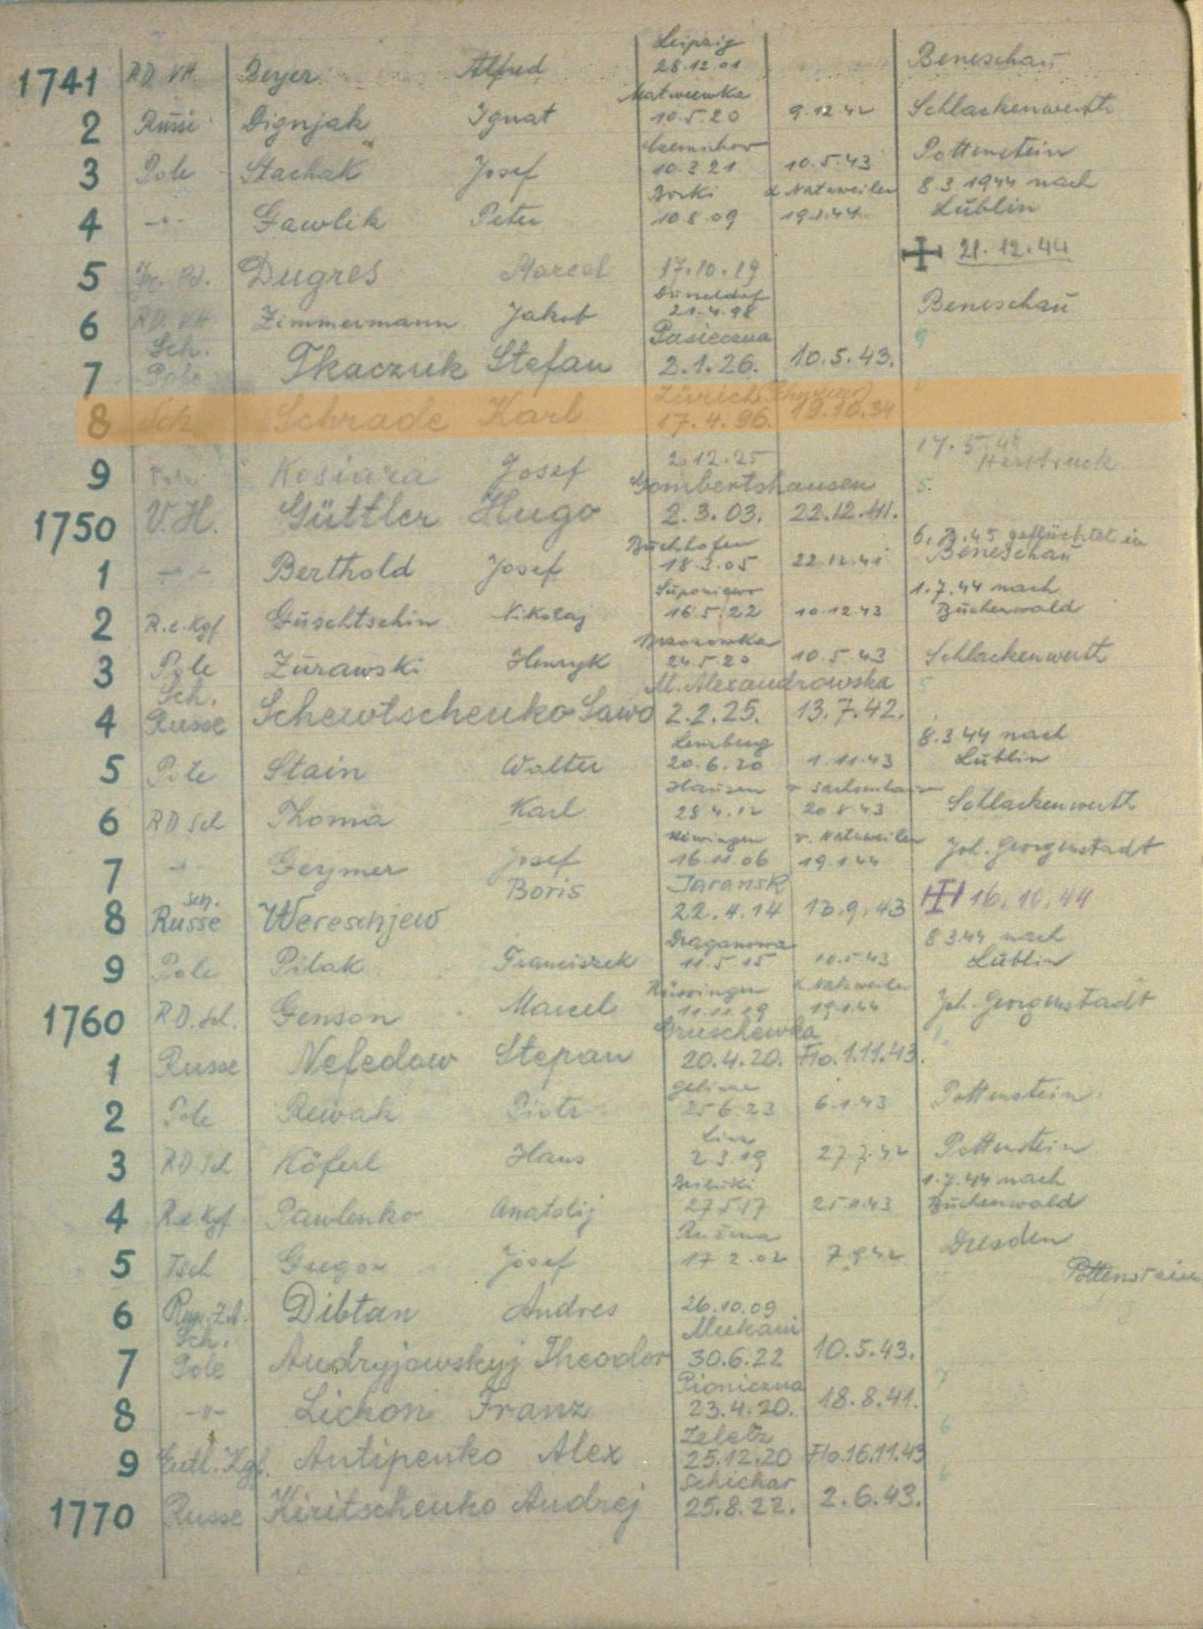 Leipzig
1741 RD VH Beyer Alfred 28.12.01 Beneschau
Matweewka
2 Russe Dignjak Ignat 10.5.20 9.12.42 Schlackenwerth
3 Pole Stachak Josef 10.3.21 10.5.43 Pottenstein
Borki Natzweiler 8.3.1944 nach
4 -"- Gawlik Peter 10.8.09 19.1.44 Lublin
21.12.44
5 Dugres Marcel 17.10.19
Düsseldorf
6 RD VH Zimmermann Jakob 21.4.98 Beneschau
Sch. Pasieczna
7 Pole Tkaczuk Stefan 2.1.26. 10.5.43. 9
Zürich
8 Sch Schrade Karl 17.4.96. 19.10.34
17.5.44
9 Kosiara Josef 2.12.25 Hersbruck
Gombertshausen 5
1750 V.H. Güttler Hugo 2.3.03. 22.12.41.
Buchhofen geflüchtet in
1 -"- Berthold Josef 18.3.05 22.12.41 Beneschau
1.7.44 nach
2 R.z.Kgf Guschtschin Nikolaj 16.5.22 10.12.43 Buchenwald
3 Pole Żurawski Henryk 24.5.20 10.5.43 Schlackenwerth
Sch. M. Alexandrowska 5
4 Russe Schewtschenko Sawo 2.2.25. 13.7.42.
Lemberg 8.3.44 nach
5 Pole Stain Walter 20.6.20 1.11.43 Lublin
Hausen v. Sachsenhausen
6 RD Sch Thoma Karl 28.4.12 20.8.43 Schlackenwerth
v. Natzweiler
7 -"- Geymer Josef 16.11.06 19.1.44 Joh. Georgenstadt
Sch. Boris Jaransk
8 Russe Wereschjew 22.4.14 13.9.43 16.10.44
Draganowa 8.3.44 nach
9 Pole Pilak Franciszek 11.5.15 10.5.43 Lublin
Natzweiler
1760 R.D.Sch. Genson Marcel 11.11.19 19.1.44 Joh. Georgenstadt
Gruschewka
1 Russe Nefedow Stepan 20.4.20. Flo.1.11.43.
2 Pole Rewak Piotr 25.6.23 6.1.43 Pottenstein
Linz
3 RD Sch Köferl Hans 2.3.19 27.7.42 Pottenstein
1.7.44 nach
4 R.z.Kgf Pawlenko Anatolij 27.5.17 25.1.43 Buchenwald
5 Tsch Gregor Josef 17.2.02 7.9.42 Dresden
Pottenstein
6 Dibtan Andres 26.10.09
Sch. Mukani
7 Pole Andryjowskyj Theodor 30.6.22 10.5.43.
Pioniczna 7
8 -"- Lichon Franz 23.4.20. 18.8.41.
Zeletz 6
9 Entl. Kgf. Antipenko Alex 25.12.20 Flo.16.11.43
Schichar 6
1770 Russe Kiritschenko Andrej 25.8.22. 2.6.43.